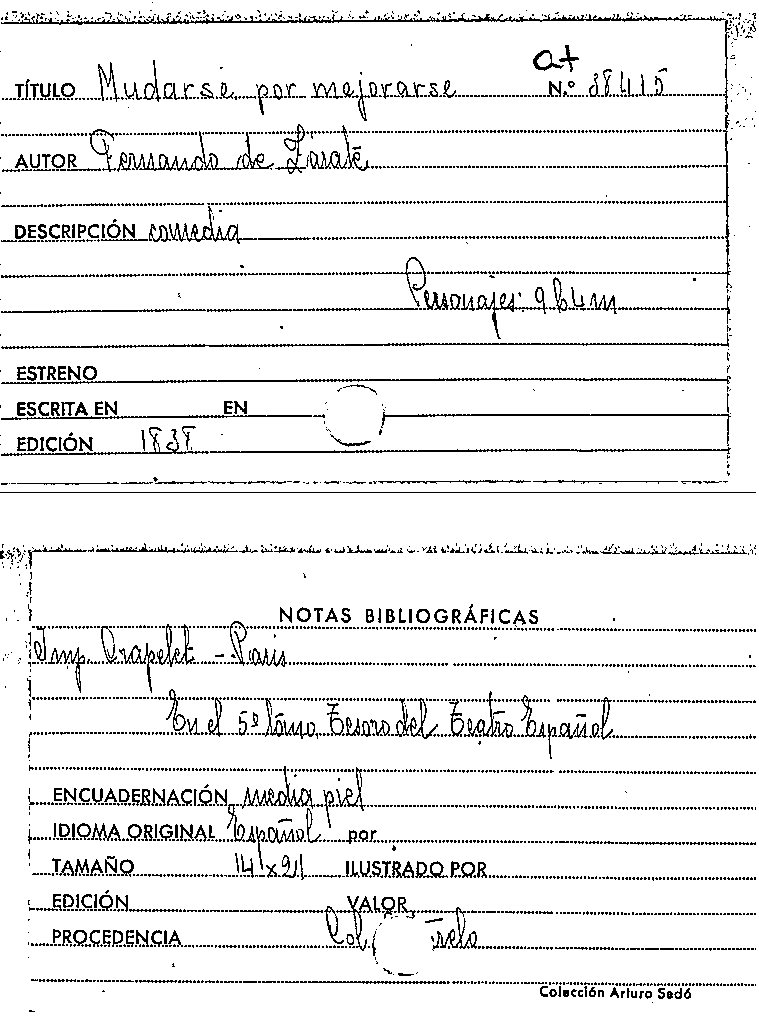 at
TÍTULO Mudarse por mejorarse N.º 38415
AUTOR Fernando de Zárate
DESCRIPCIÓN comedia
Personajes: 9 h 4 m
ESTRENO
ESCRITA EN EN
EDICIÓN 1838
NOTAS BIBLIOGRÁFICAS
Imp. Crapelet - Paris
En el 5º tomo, Tesoro del Teatro Español
ENCUADERNACIÓN media piel
IDIOMA ORIGINAL Español por
TAMAÑO 14 x 21 ILUSTRADO POR
EDICIÓN VALOR
PROCEDENCIA Col.
Colección Arturo Sedó